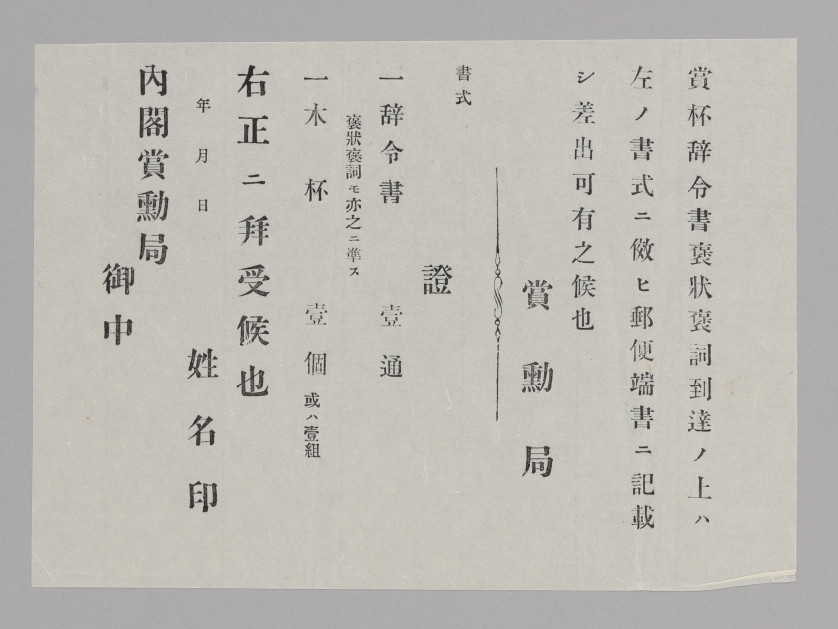 賞杯辞令書褒狀褒詞到達ノ上ハ
左ノ書式ニ傚ヒ郵便端書ニ記載
シ差出可有之候也
賞勳局
書式
證
一辞令書 壹通
褒狀褒詞モ亦之ニ準ス
一木杯 壹個 或ハ壹組
右正ニ拜受候也
年月日
姓名印
內閣賞勳局
御中